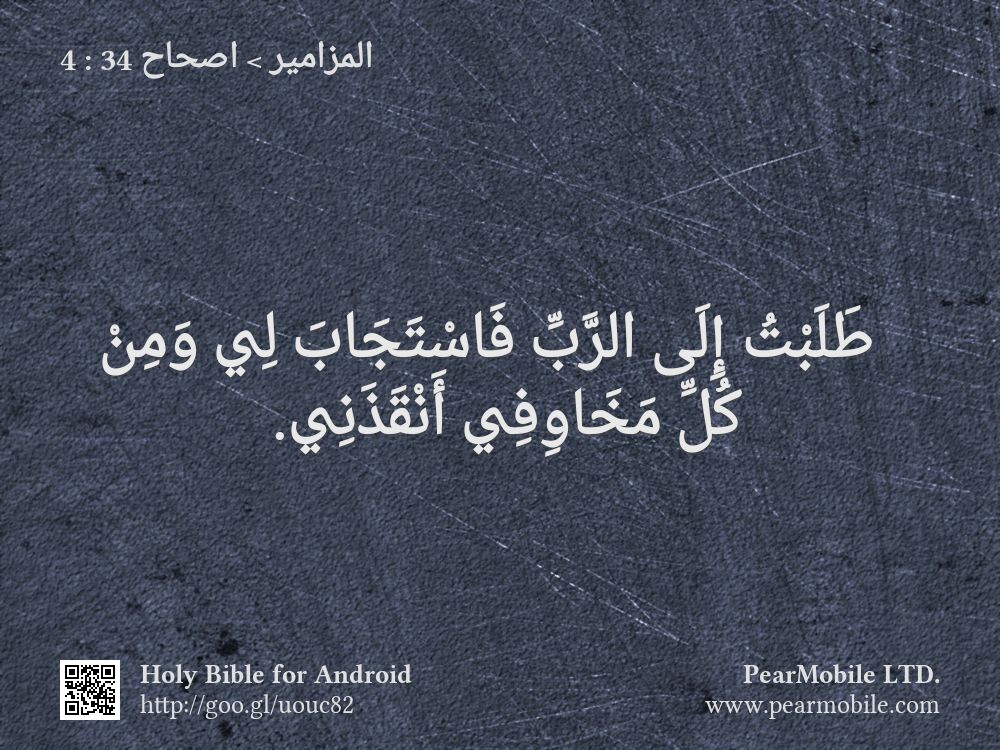 المزامير > اصحاح 34 : 4
طَلَبْتُ إِلَى الرَّبِّ فَاسْتَجَابَ لِي وَمِنْ
كُلِّ مَخَاوِفِي أَنْقَذَنِي.
Holy Bible for Android
http://goo.gl/uouc82
PearMobile LTD.
www.pearmobile.com